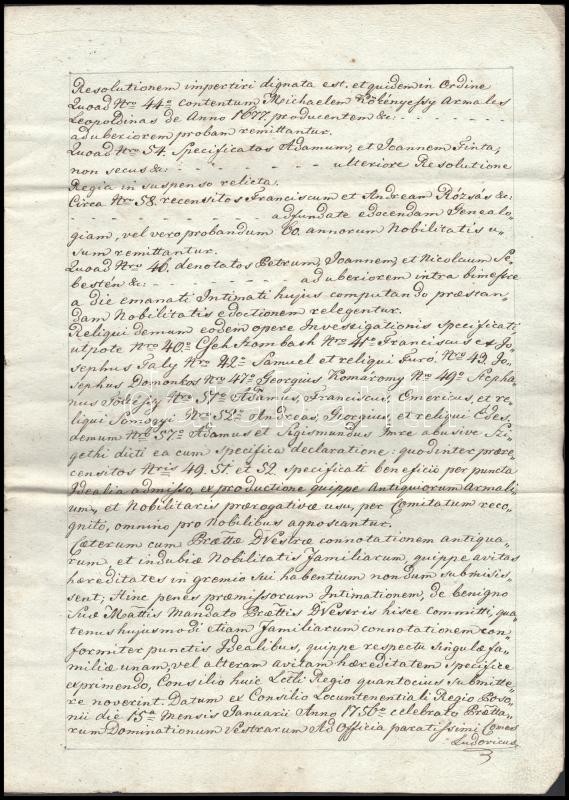 Resolutionem impertiri dignata est. et quidem in Ordine
Quoad Nro 44o contentum Michaelem Kökényessy Armales
Leopoldinas de Anno 1677. producentem &c: - - - - - -
ad uberiorem probam remittantur.
Quoad Nro 54. Specificatos Adamum, et Ioannem Finta,
non secus &c: - - - - - - - - - - ulteriore Resolutione
Regia in suspenso relicta.
Circa Nro 58. recensitos Franciscum et Andream Rózsás &c:
- - - - - - - - - - - ad fundate edocendam Genealo„
giam, vel vero probandum 60. annorum Nobilitatis u„
sum remittantur.
Quoad Nro 40. denotatos Petrum, Ioannem, et Nicolaum Se„
bestén &c: - - - - - - - - - ad uberiorem intra bimestre
a die emanati Intimati hujus computando præstan„
dam Nobilitatis edoctionem relegentur.
Reliqui demum eodem opere Investigationis Specificati
utpote Nro 40o Cseh Szombath Nro 41o Franciscus et Jo„
sephus Galy Nro 42o Samuel et reliqui Furó. Nro 43. Jo„
sephus Domonkos Nro 47o Georgius Komáromy Nro 49o Stepha„
nus Nro 51o Adamus, Franciscus, Omericus, et re„
liqui Somogyi Nro 52o Andreas, Georgius, et reliqui Edes,
demum Nro 57o Adamus et Sigismundus Imre abusive Szi„
gethi dicti ea cum specifica declaratione: quod inter prære„
censitos Nris 49. 51. et 52. specificati beneficio per puncta
Idealia admisso, ex productione quippe Antiquiorum Armali„
um, et Nobilitaris prærogativæ usu, per Comitatum reco„
gnito, omnino pro Nobilibus agnoscantur.
Cæterum cum Prættæ DVestræ connotationem antiqua„
rum, et indubiæ Nobilitatis Familiarum, quippe avitas
hæreditates in gremio sui habentium nondum submisis„
sent; Hinc penes præmissorum Intimationem, de benigno
Suæ Mattis Mandato Prættis DVestris hisce committi, qua„
tenus hujusmodi etiam Familiarum connotationem con„
formiter punctis Idealibus, quippe respectu singulæ fa„
miliæ unam, vel alteram avitam hæreditatem specifice
exprimendo, Consilio huic Lcttli Regio quantocius submitte„
re noverint. Datum ex Consilio Locumtenentiali Regio Poso„
nii die 15a Mensis Januarii Anno 1756o celebrato Prætta„
rum Dominationum Vestrarum Ad Officia paratissimi Comes
Ludovicus